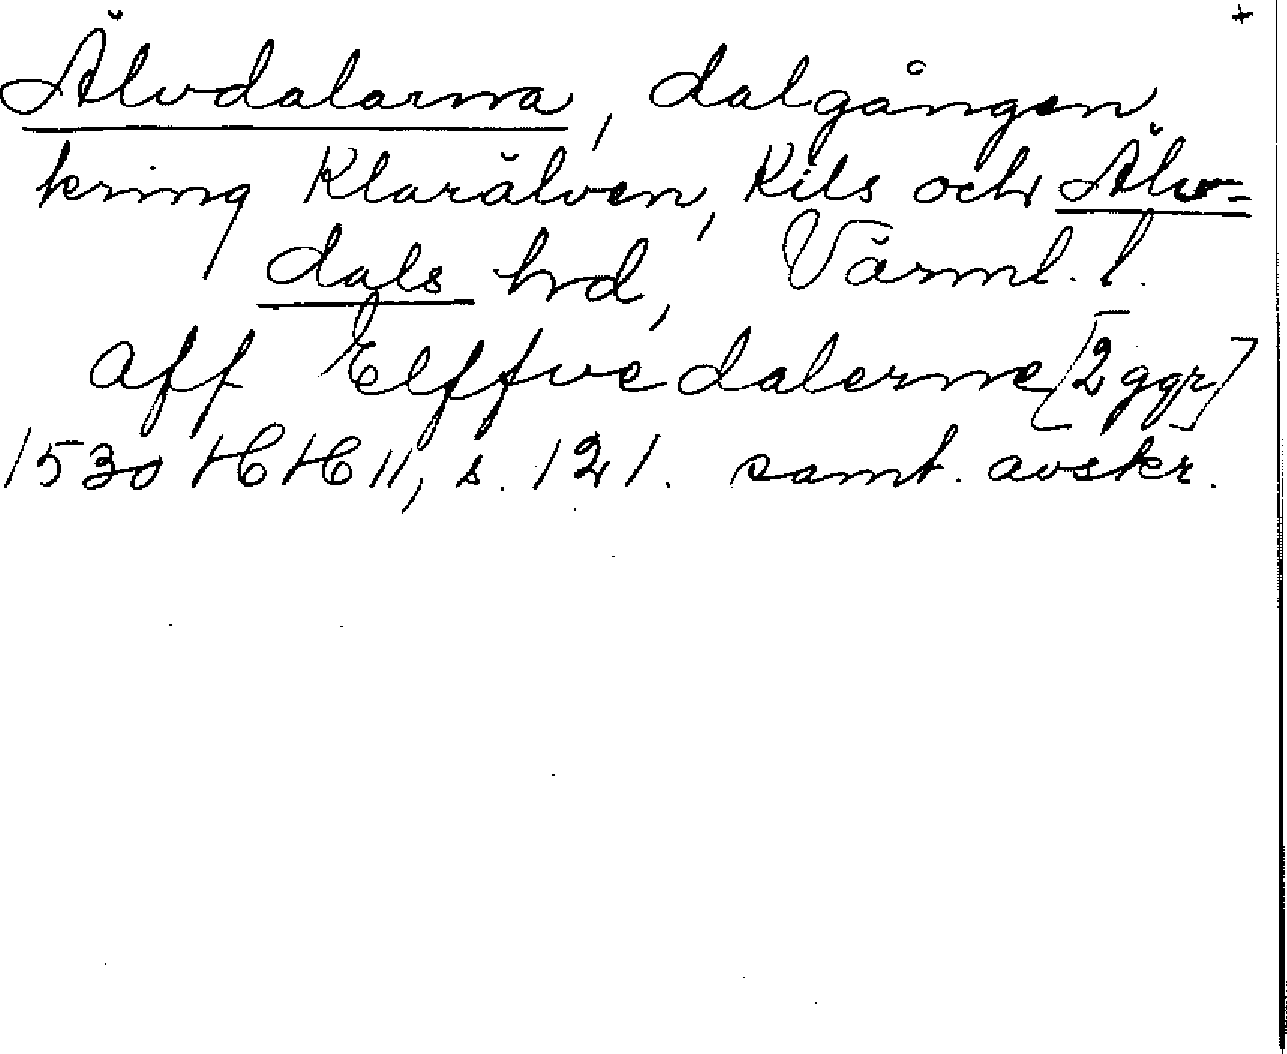 +
Älvdalarna, dalgången
kring Klarälven, Kils och Älv-
dals hrd, Värml. l.
aff Elffvedalerne [2 ggr]
1530 HH 11, s. 121. samt. avskr.